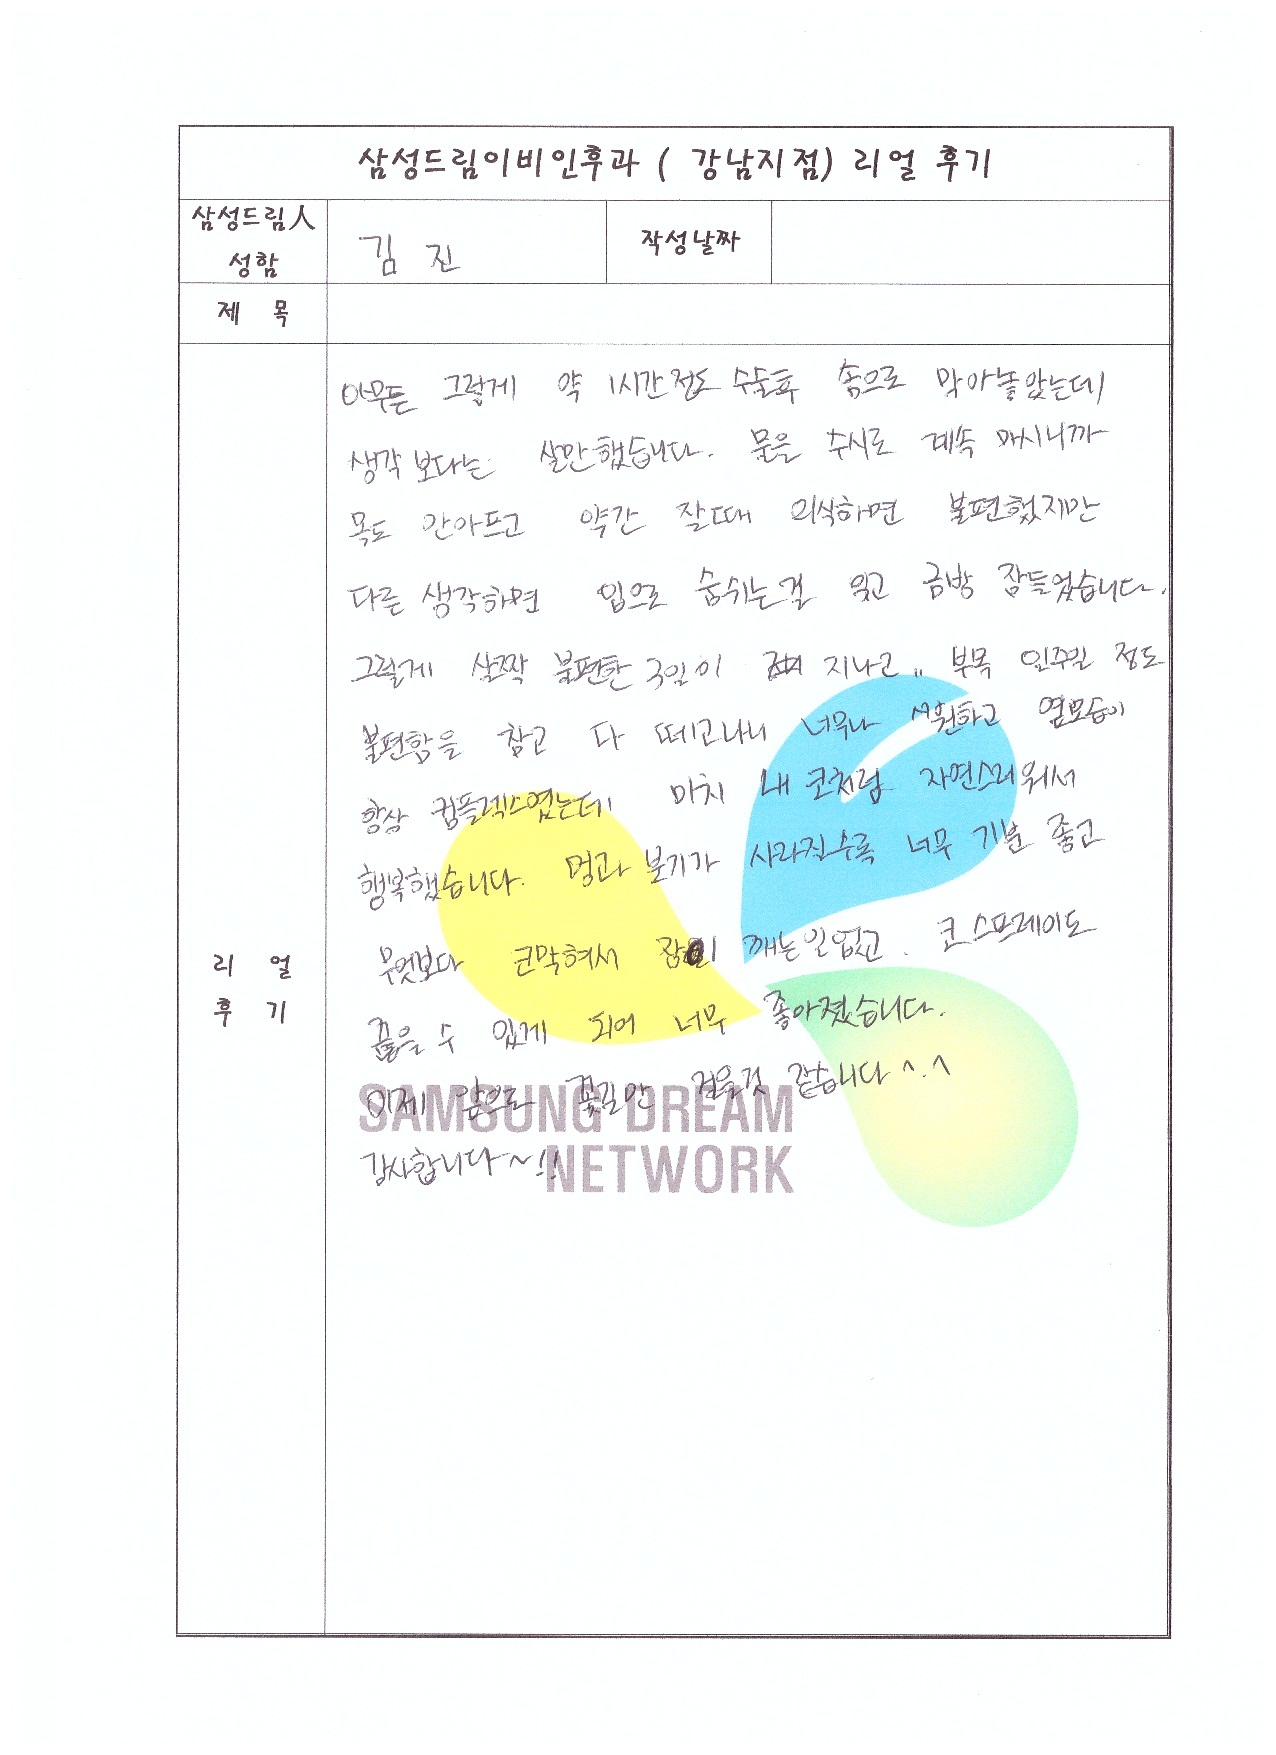 삼성드림이비인후과 ( 강남지점) 리얼 후기
삼성드림人 성함
김 진
작성날짜
제 목
리 얼 후 기
아무튼 그렇게 약 1시간정도 수술후 솜으로 막아놓았는데
생각보다는 살만했습니다. 물을 수시로 계속 마시니까
목도 안아프고 약간 잘때 의식하면 불편했지만
다른 생각하면 입으로 숨쉬는걸 잊고 금방 잠들었습니다.
그렇게 살짝 불편한 3일이 지나고.. 부목 일주일 정도
불편함을 참고 다 떼고나니 너무나 시원하고 옆모습이
항상 컴플렉스였는데 마치 내 코처럼 자연스러워서
행복했습니다. 멍과 붓기가 사라질수록 너무 기분 좋고
무엇보다 코막혀서 깨는일 없고. 코 스프레이도
끊을 수 있게 되어 너무 좋아졌습니다.
이제 앞으로 꽃길만 걸을것 같습니다 ^.^
감사합니다~!!
SAMSUNG DREAM
NETWORK